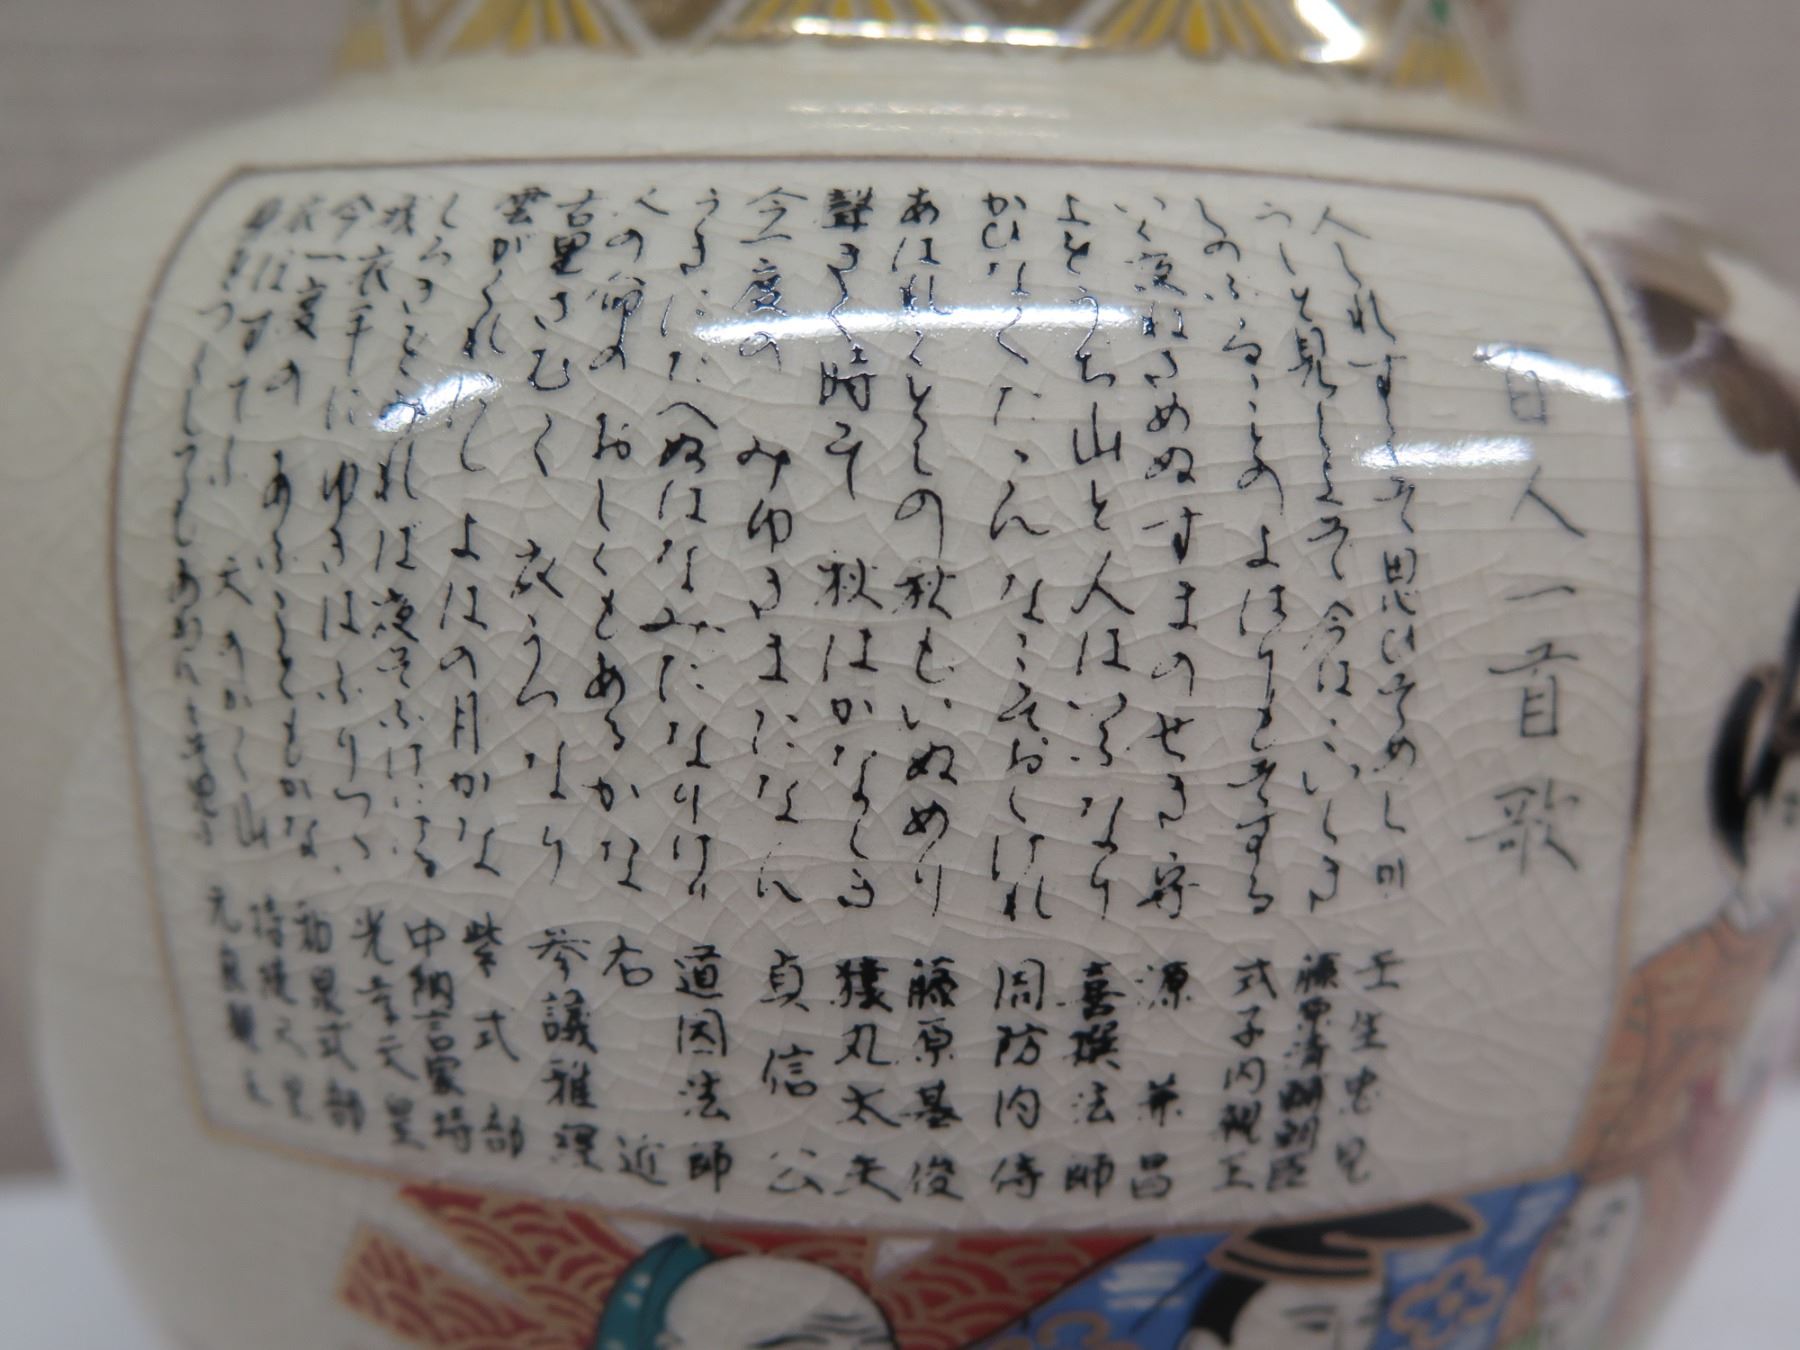 百人一首歌
人しれすこそ思ひそめしか 壬生忠見
うしと見しよそ今はこいしき 藤原清輔朝臣
しのふることのよはりもそする 式子内親王
いく夜ねさめぬすまのせき守 源兼昌
よをうち山と人はいふなり 喜撰法師
かひなくたゝんなこそおしけれ 周防内侍
あはれことしの秋もいぬめり 藤原基俊
聲きく時そ 秋はかなしき 猿丸太夫
今一度の みゆきまたなん 貞信公
うきにたへぬはなみたなりけり 道因法師
人の命の おしくもあるかな 右近
古里さむく 衣うつなり 参議雅経
雲がくれにし よはの月かな 紫式部
しろきをみれば夜そふけにける 中納言家持
我衣手に ゆきはふりつゝ 光孝天皇
今一度の あふこともかな 和泉式部
衣ほすてふ 天のかく山 持統天皇
身をつくしてもあはんとそ思ふ 元良親王